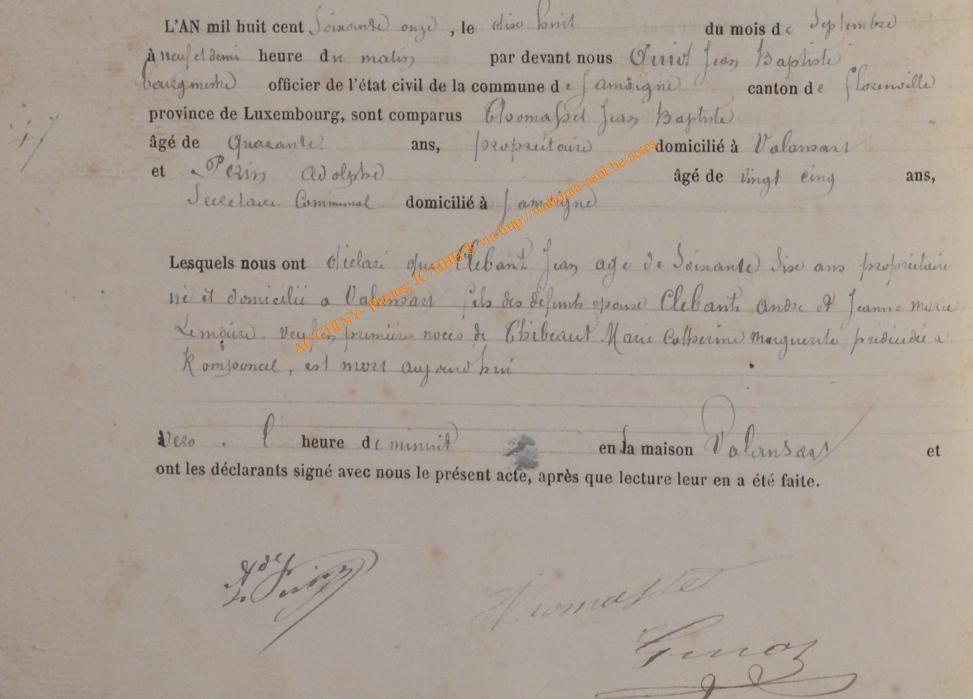 L'AN mil huit cent Soixante onze, le dix huit du mois de Septembre
à neuf et demi heure du matin par devant nous Guiot Jean Baptiste
bourgmestre officier de l'état civil de la commune de Jamoigne canton de florenville
province de Luxembourg, sont comparus Thomasset Jean Baptiste
47
âgé de Quarante ans, propriétaire domicilié à Valansart
et Périn Adolphe âgé de vingt cinq ans,
Secretaire Communal domicilié à Jamoigne
Lesquels nous ont déclaré que Clebant Jean age de Soixante dixe ans propriétaire
né et domicilié a Valansart fils des défunts epouse Clebant Andre et Jeanne Marie
Lemoire. Veuf en premières noces de Thibeaut Marie Catherine Marguerite prédécédée a
Romponcel, est mort aujourd'hui
vers l' heure de minuit en la maison Valansart et
ont les déclarants signé avec nous le présent acte, après que lecture leur en a été faite.
AC CHINY - Photos JC HBIEX via http://wallonia-asbl.be/actes
Ade Perin
Thomasset